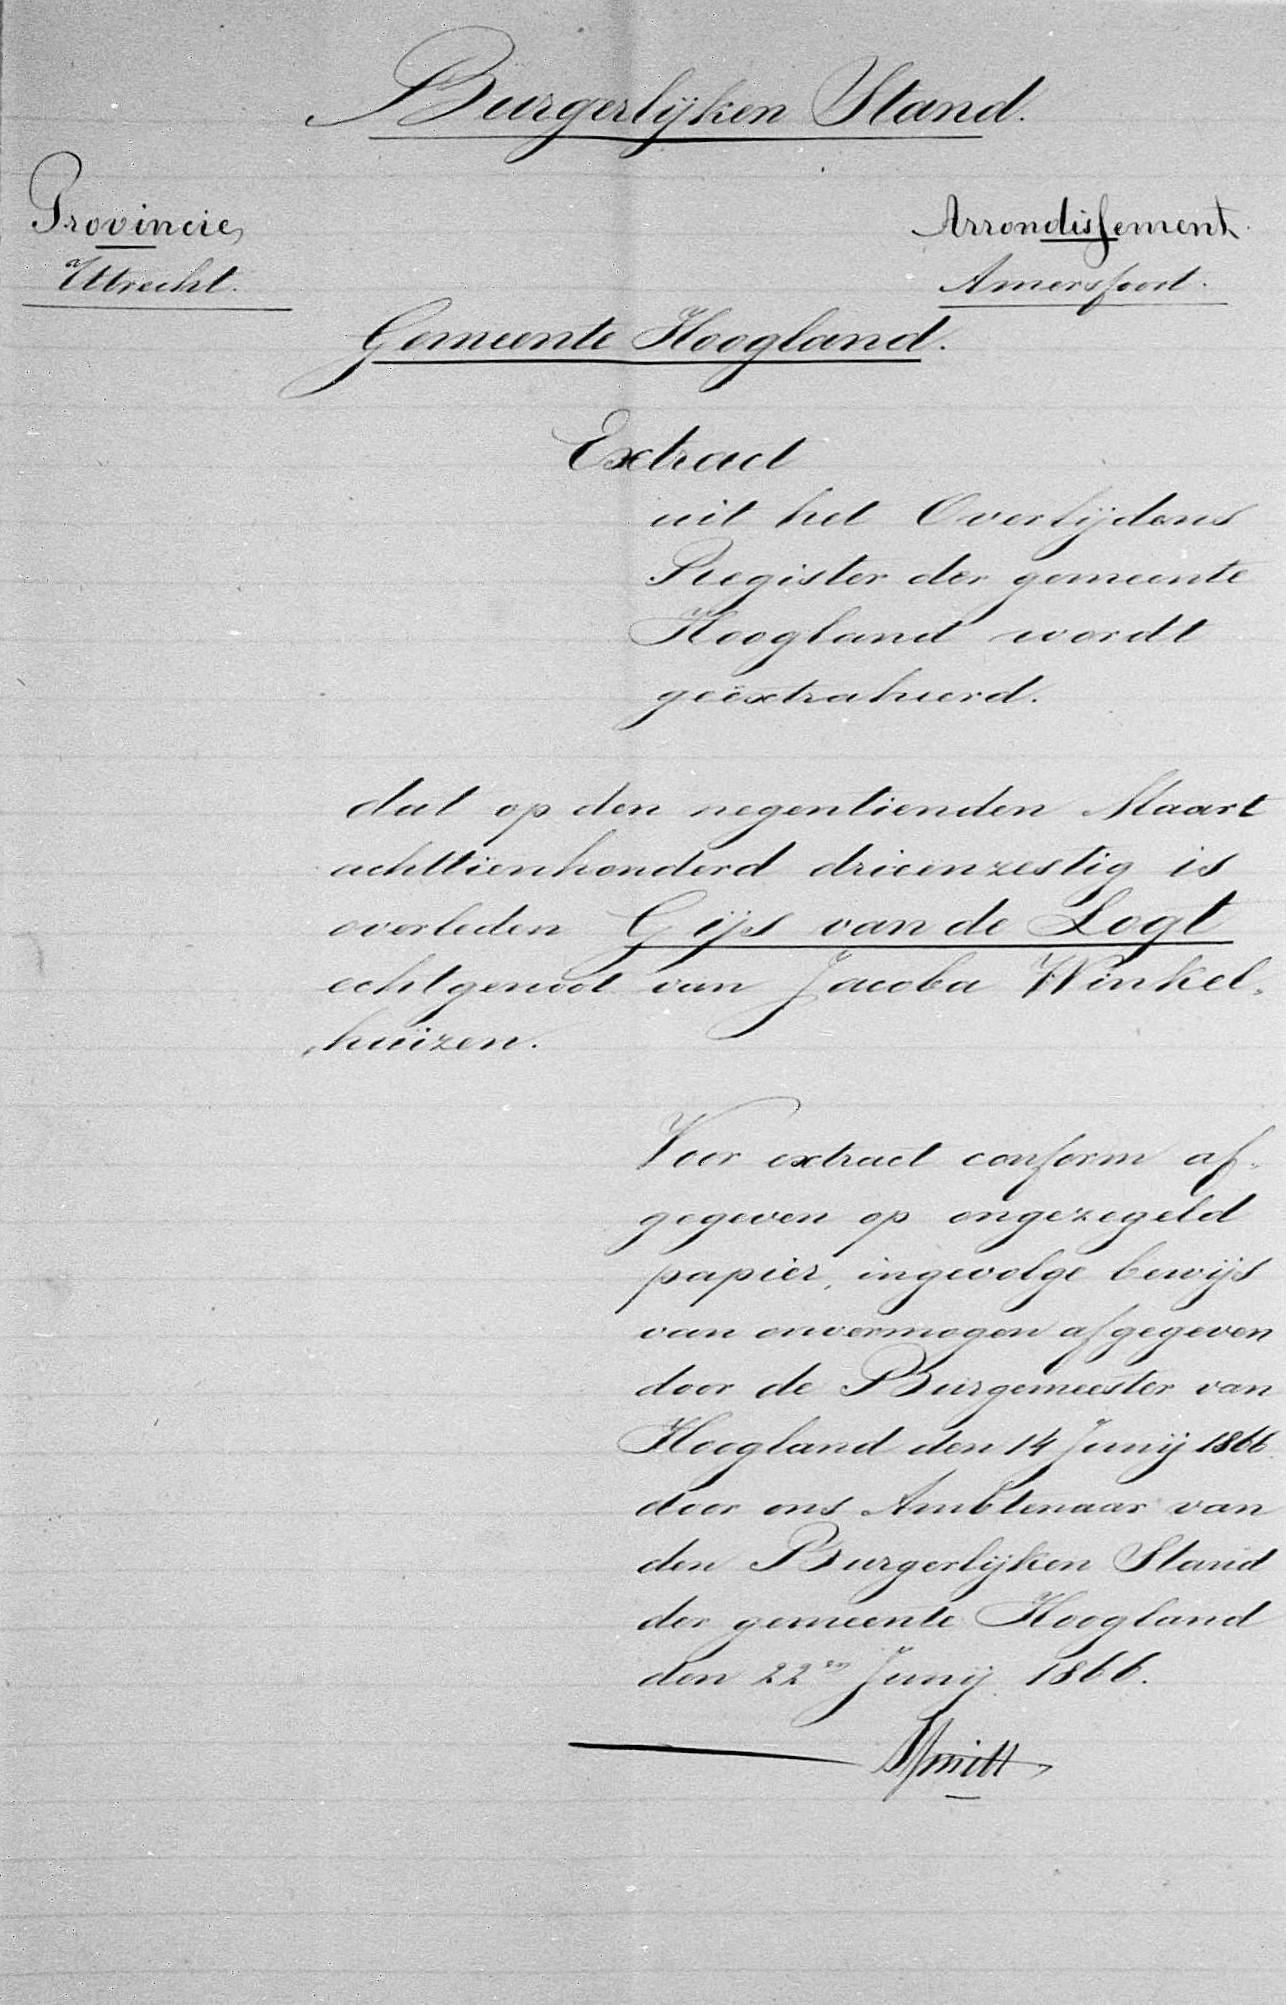 Burgerlijken Stand.
Provincie
Utrecht.
Arrondissement
Amersfoort.
Gemeente Hoogland.
Extract
uit het Overlijdens
Register der gemeente
Hoogland wordt
geëxtraheerd.
dat op den negentienden Maart
achttienhonderd drieenzestig is
overleden Gijs van de Logt
echtgenoot van Jacoba Winkel„
„huizen.
Voor extract conform af„
gegeven op ongezegeld
papier, ingevolge bewijs
van onvermogen afgegeven
door de Burgemeester van
Hoogland den 14 Junij 1866.
door ons Ambtenaar van
den Burgerlijken Stand
der gemeente Hoogland
den 22en Junij 1866.